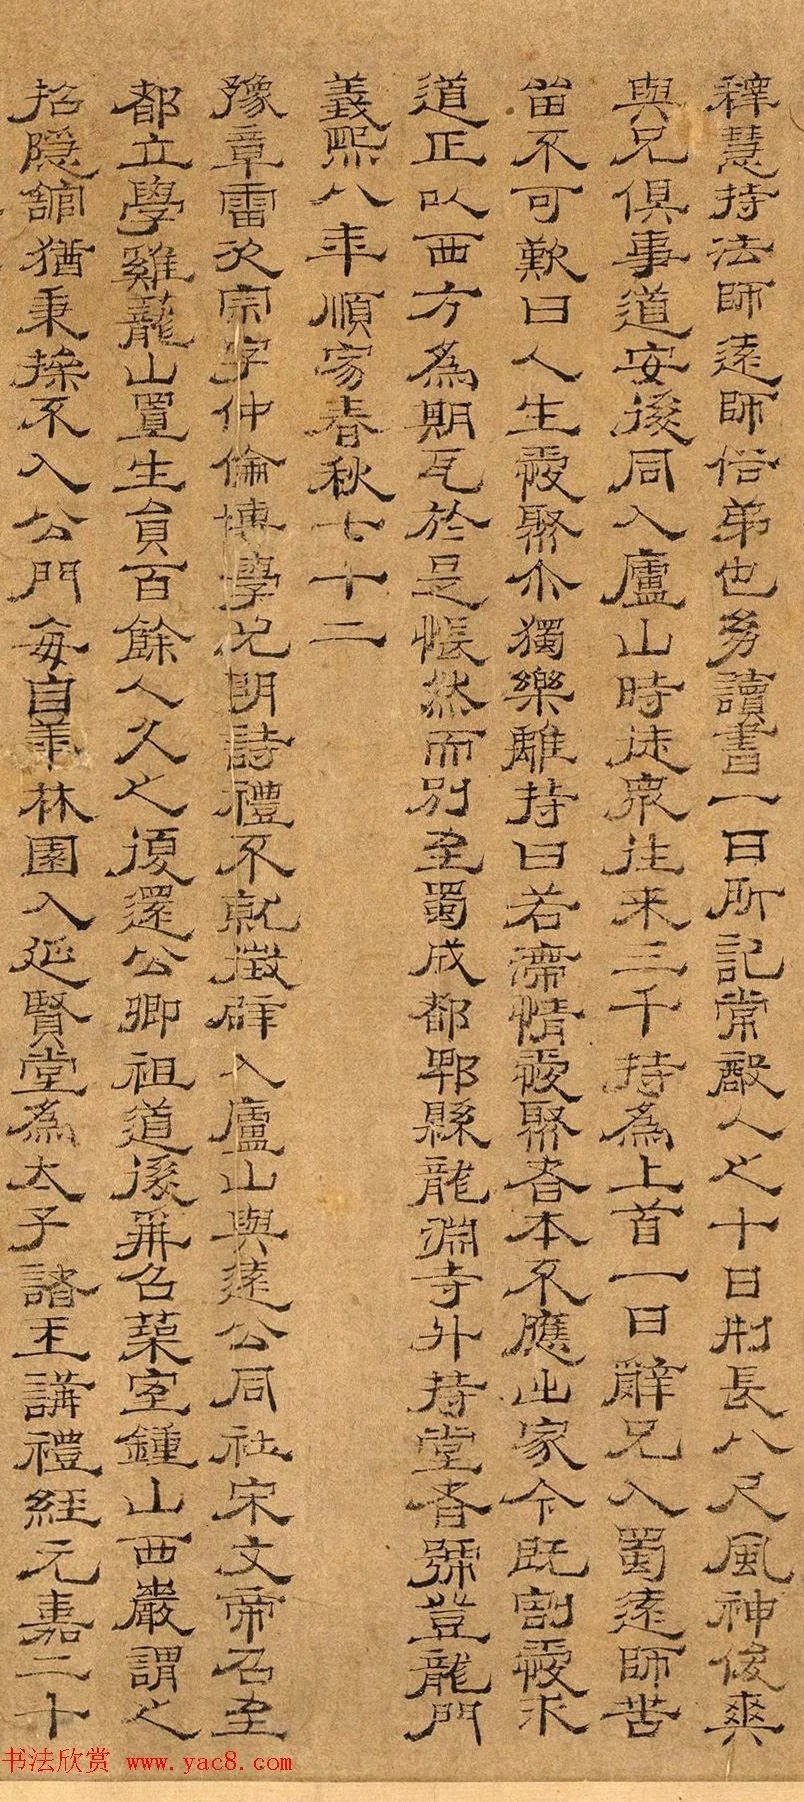 釋慧持法師遠師俗弟也㓜讀書一日所記常敵人之十日形長八尺風神俊爽
與兄俱事道安後同入廬山時徒衆往來三千持為上首一日辭兄入蜀遠師苦
留不可歎曰人生愛聚尒獨樂離持曰若滯情愛聚者本不應出家今既割愛求
道正以西方為期瓦於是悵然而別至蜀成都郫縣龍淵寺外持堂者號登龍門
義熙八年順寂春秋七十二
豫章雷次宗字仲倫博學尤明詩禮不就徵辟入廬山與遠公同社宋文帝召至
都立學雞蘢山置生員百餘人久之復還公卿祖道後再召築室鍾山西巖謂之
招隱館猶秉操不入公門每自華林園入延賢堂為太子諸王講禮經元嘉二十
书法欣赏 www.yac8.com